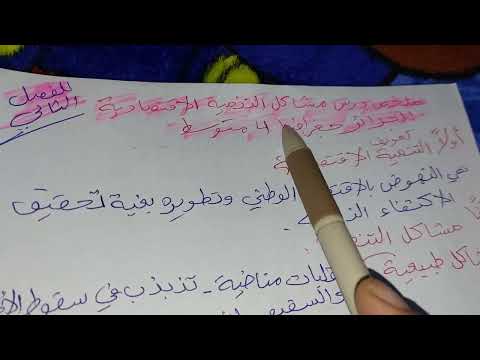 للفصل الثاني
ملخص درس مشاكل التنمية الاقتصادية
للجزائر جغرافيا 4 متوسط
أولاً تعريف التنمية
هي النهوض بالاقتصاد الوطني وتطويره بغية تحقيق
الاكتفاء
مشاكل
طبيعية
مناخية - تذبذب في سقوط